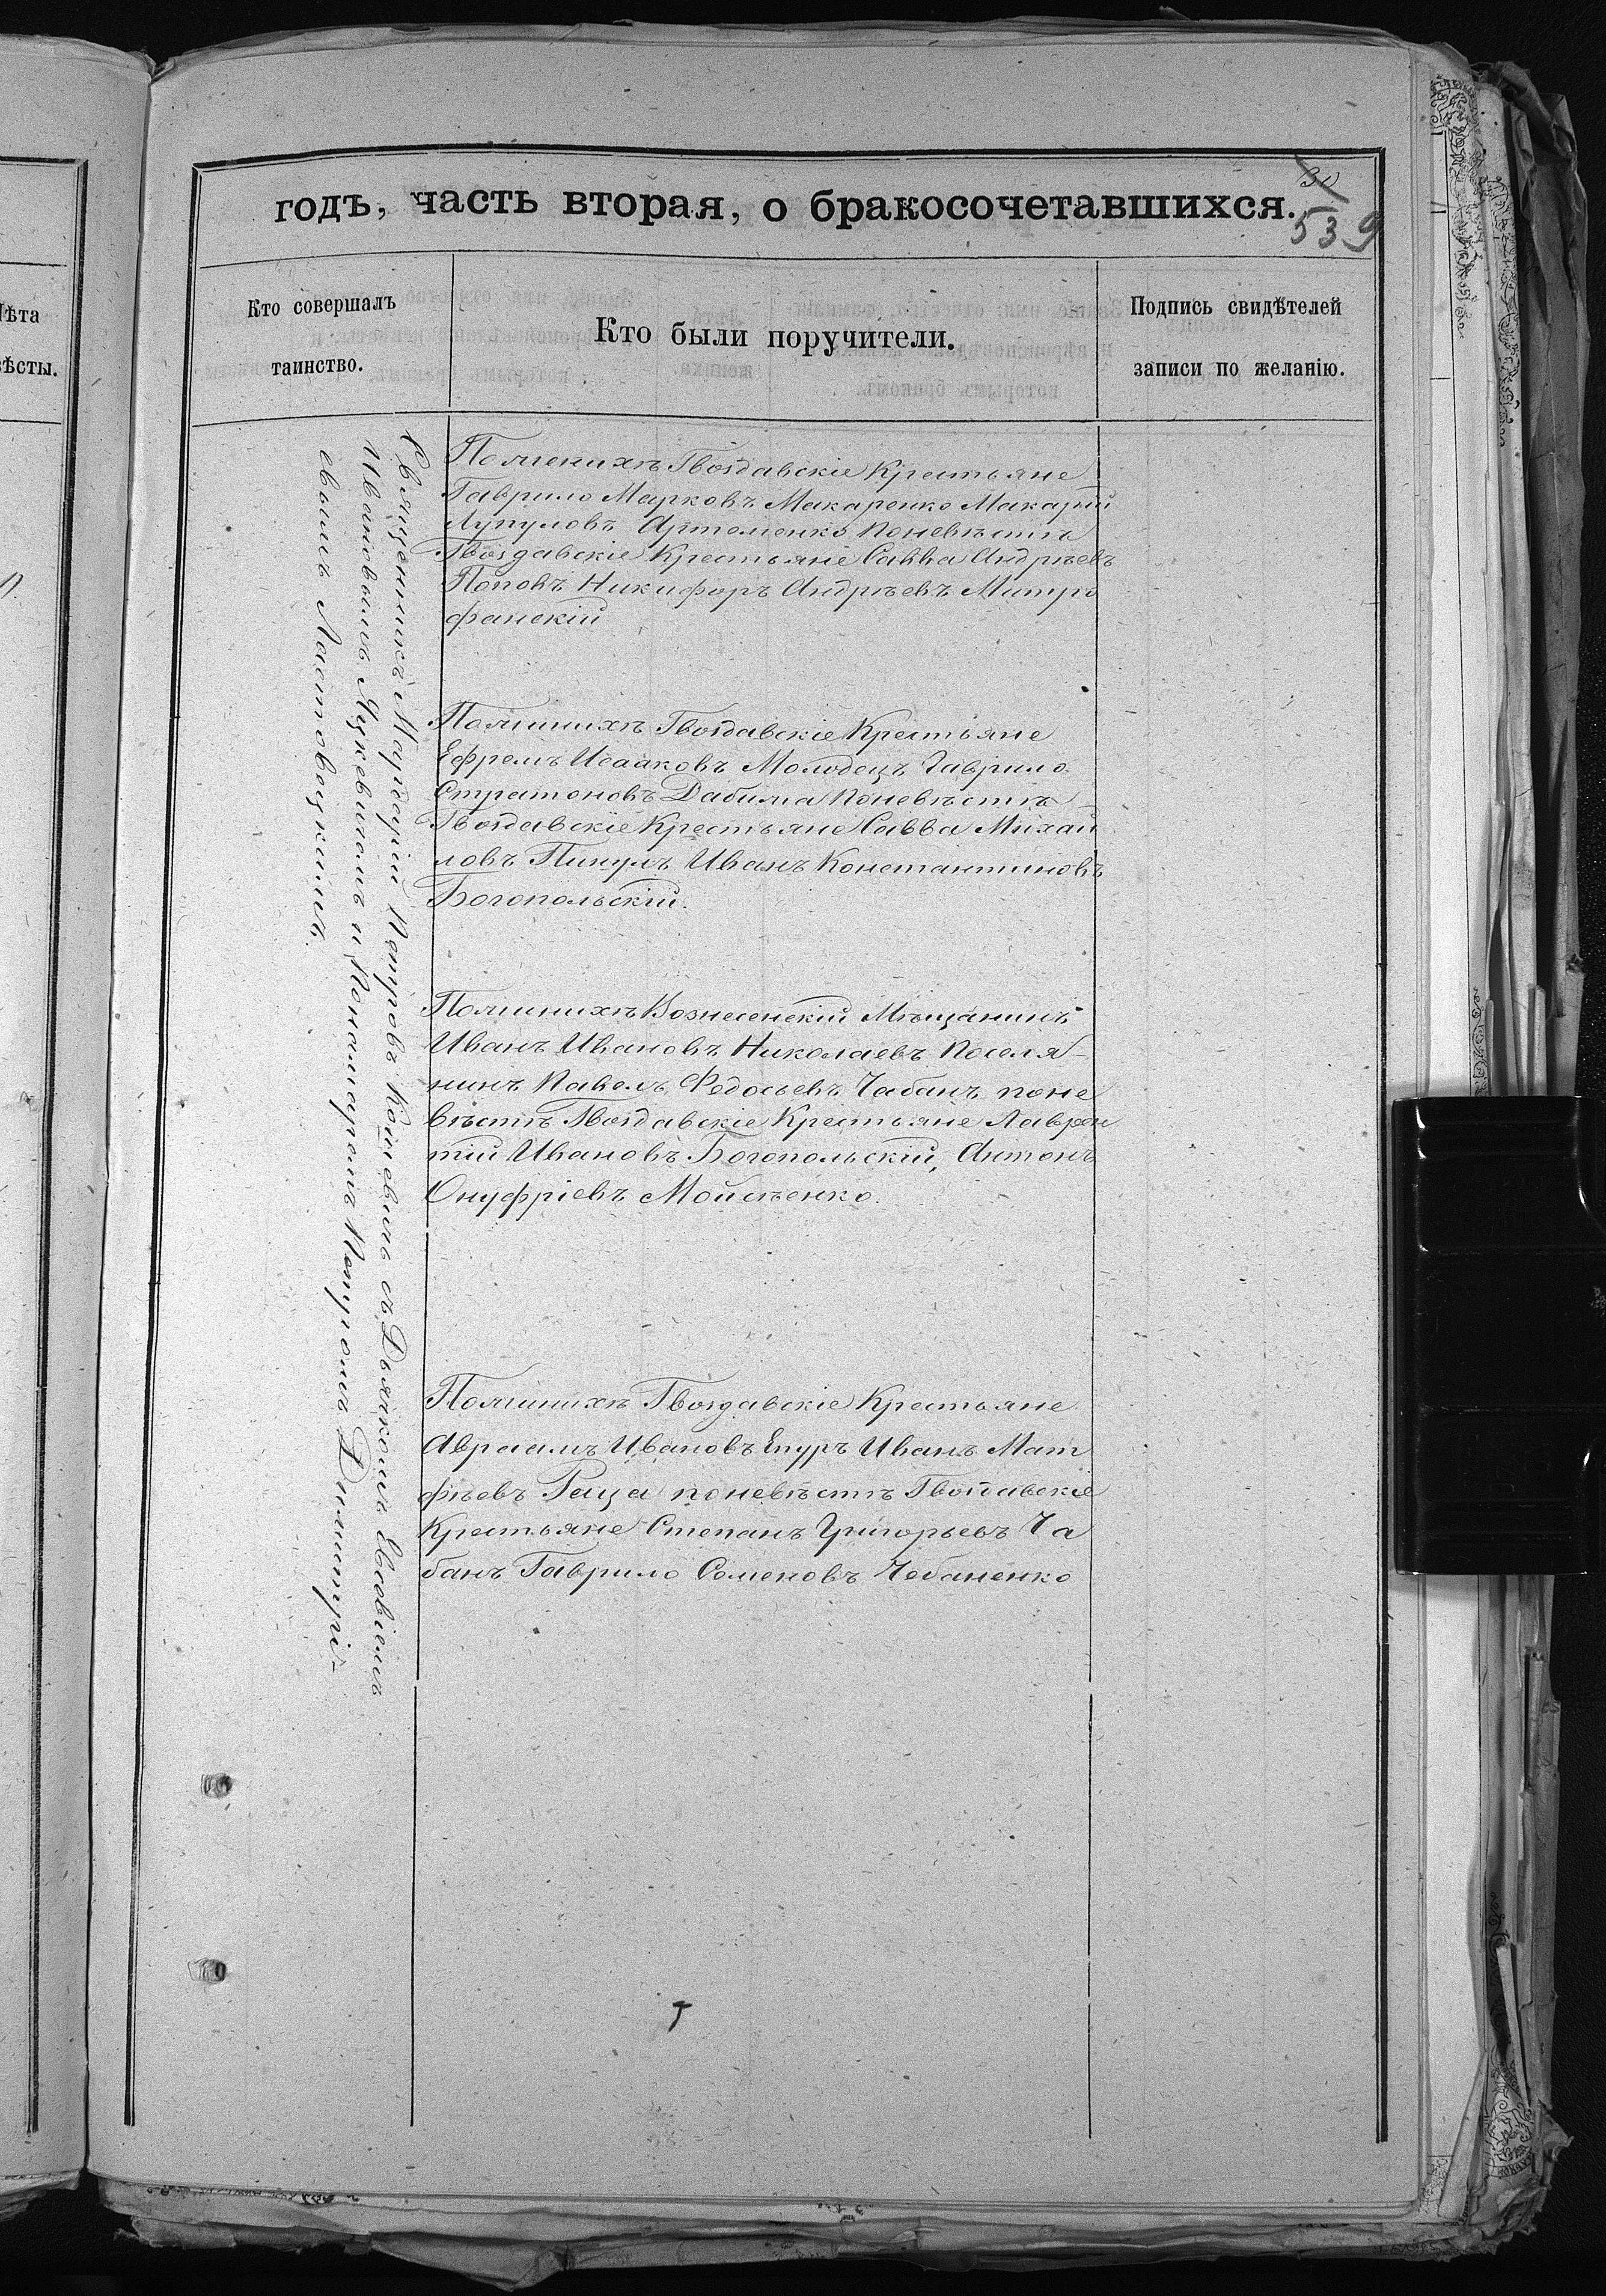 лѣта
вѣсты.
30
539
годъ, часть вторая, о бракосочетавшихся.
Кто совершалъ
таинство.
Кто были поручители.
Подпись свидѣтелей
записи по желанію.
Священникъ Мардарій Петровъ Кошевичъ съ Дьячкомъ Евсевіемъ
Ивановымъ Яцкевичамъ и Пономаремъ Петромъ Димитрі-
евымъ Ластовецкимъ.
Пожених ѣ Гвоздавскіе Крестьяне
Гаврило Марковъ Макаренко Макарій
Лупуловъ Артеменко поневѣстѣ
Гвоздавскіе Крестьяне Савва Андрѣевъ
Поповъ Никифоръ Андрѣевъ Митро
фанскій
Пожинихѣ Гвоздавскіе Крестьяне
Ефремъ Исааковъ Молодецъ Гаврило
Стратоновъ Дабижа поневѣстѣ
Гвоздавскіе Крестьяне Савва Михай
ловъ Пикулъ Иванъ Константиновъ
Богопольскій.
Пожинихѣ Вознесенскій Мѣщанинъ
Иванъ Ивановъ Николаевъ Поселя-
нинъ Павелъ Федосьевъ Чабанъ поне
вѣстѣ Гвоздавскіе Крестьяне Лаврен
тій Ивановъ Богопольскій, Антонъ
Онуфріевъ Мойсѣенко.
Пожинихѣ Гвоздавскіе Крестьяне
Авраамъ Ивановъ Епуръ Иванъ Мат
фѣевъ Раца поневѣстѣ Гвоздавскіе
Крестьяне Степанъ Григорьевъ Ча
банъ Гаврило Семеновъ Чебаненко